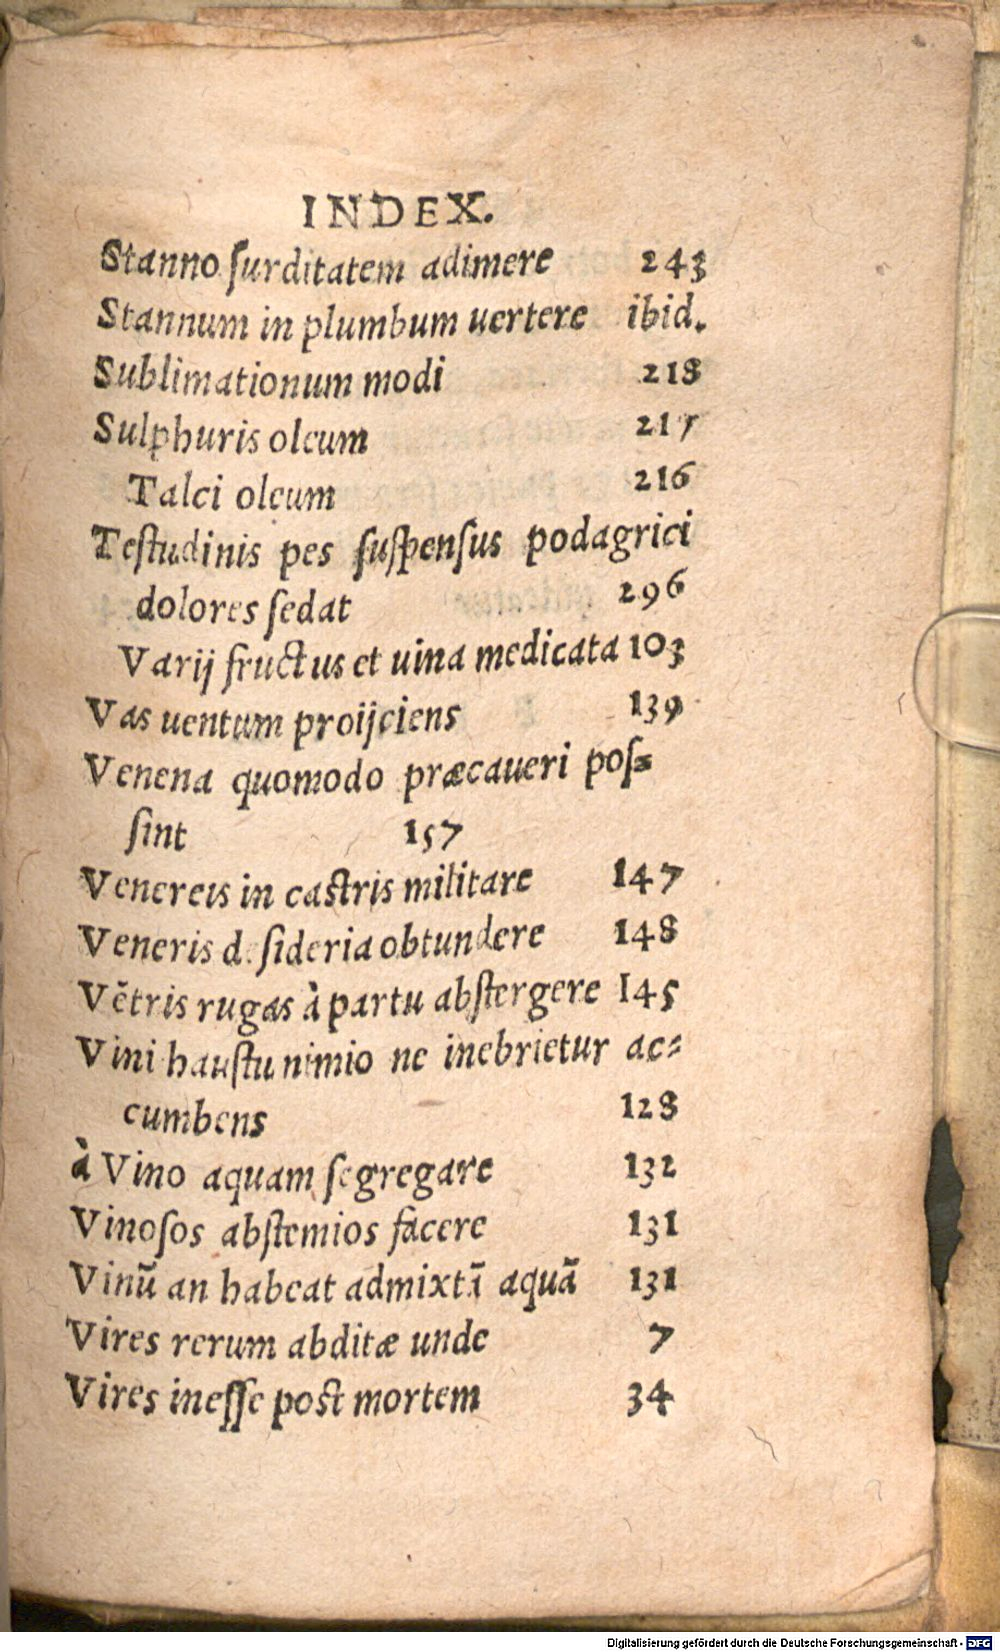 INDEX.
Stanno surditatem adimere 243
Stannum in plumbum uertere ibid.
Sublimationum modi 218
Sulphuris oleum 215
Talci oleum 216
Testudinis pes suspensus podagrici
dolores sedat 296
Varij fructus et uina medicata 103
Vas uentum proijciens 139
Venena quomodo præcaueri pos=
sint 157
Venereis in castris militare 147
Veneris desideria obtundere 148
Vẽtris rugas à partu abstergere 145
Vini haustu nimio ne inebrietur ac=
cumbens 128
à Vino aquam segregare 132
Vinosos abstemios facere 131
Vinũ an habeat admixtã aquã 131
Vires rerum abditæ unde 7
Vires inesse post mortem 34
Digitalisierung gefördert durch die Deutsche Forschungsgemeinschaft - DFG